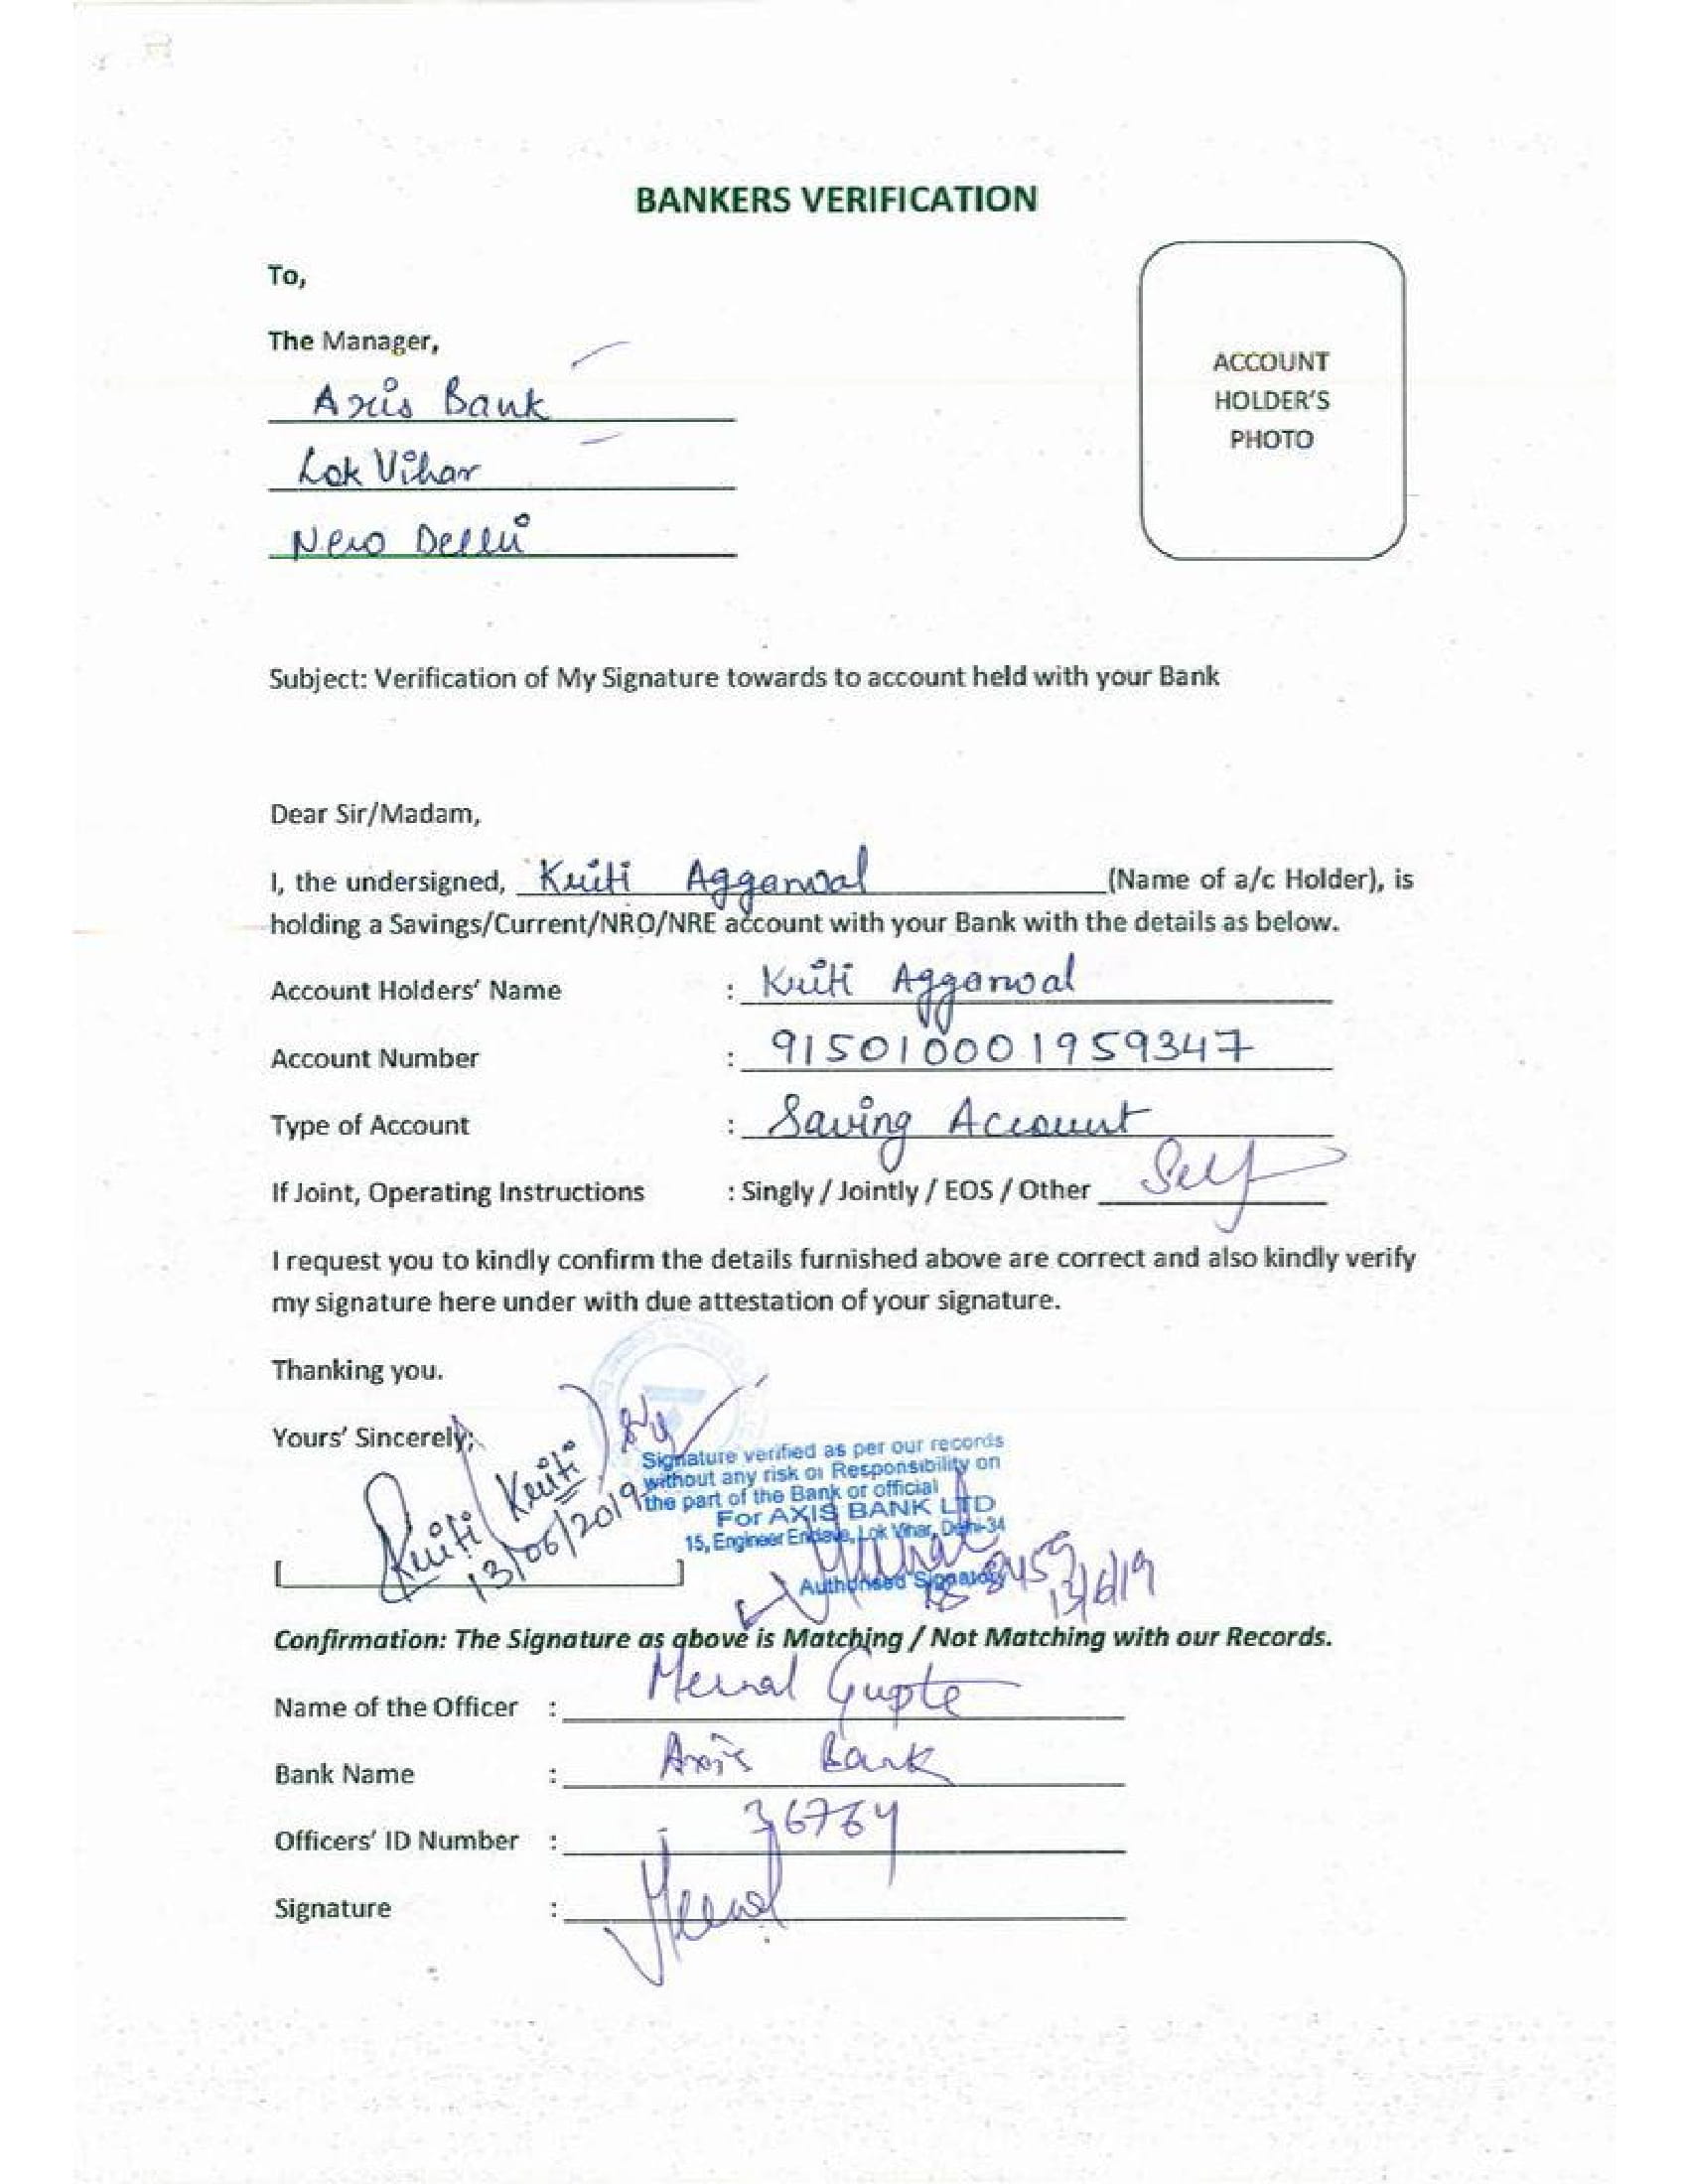 BANKERS VERIFICATION
To,
The Manager,
Axis Bank
Lok Vihar
New Delhi
ACCOUNT
HOLDER'S
PHOTO
Subject: Verification of My Signature towards to account held with your Bank
Dear Sir/Madam,
I, the undersigned, Kriti Aggarwal (Name of a/c Holder), is
holding a Savings/Current/NRO/NRE account with your Bank with the details as below.
Account Holders' Name : Kriti Aggarwal
Account Number : 915010001959347
Type of Account : Saving Account
If Joint, Operating Instructions : Singly / Jointly / EOS / Other Self
I request you to kindly confirm the details furnished above are correct and also kindly verify
my signature here under with due attestation of your signature.
Thanking you.
Yours' Sincerely,
Kriti Kriti
13/06/2019
Signature verified as per our records
without any risk or Responsibility on
the part of the Bank or official
For AXIS BANK LTD
15, Engineer Enclave, Lok Vihar, Delhi-34
Authorised Signatory
13/6/19
[ ]
Confirmation: The Signature as above is Matching / Not Matching with our Records.
Name of the Officer : Meenal Gupta
Bank Name : Axis Bank
Officers' ID Number : 36764
Signature : Meenal